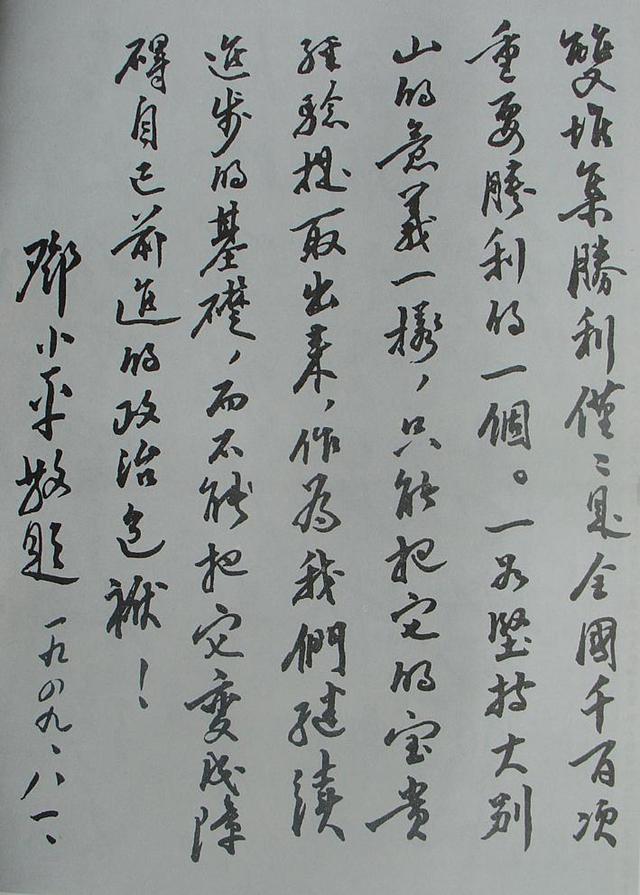 雙堆集勝利僅〻是全國千百项
重要勝利的一個。一如堅持大别
山的意義一樣，只能把它的宝貴
經驗提取出来，作為我們继续
進步的基礎，而不能把它变成障
碍自己前進的政治包袱！
鄧小平敬題 一九四九、八、一、